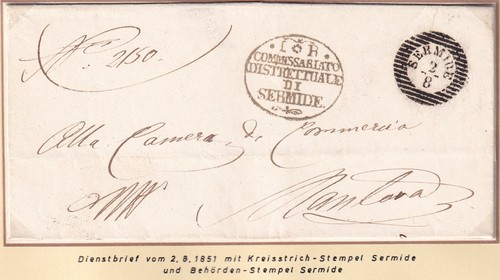 N.° 2150.
I R
COMMISSARIATO
DISTRETTUALE
DI
SERMIDE.
SERMIDE
2
8
Alla Camera di Commercio
Mantova
Dienstbrief vom 2.8.1851 mit Kreisstrich-Stempel Sermide
und Behörden-Stempel Sermide